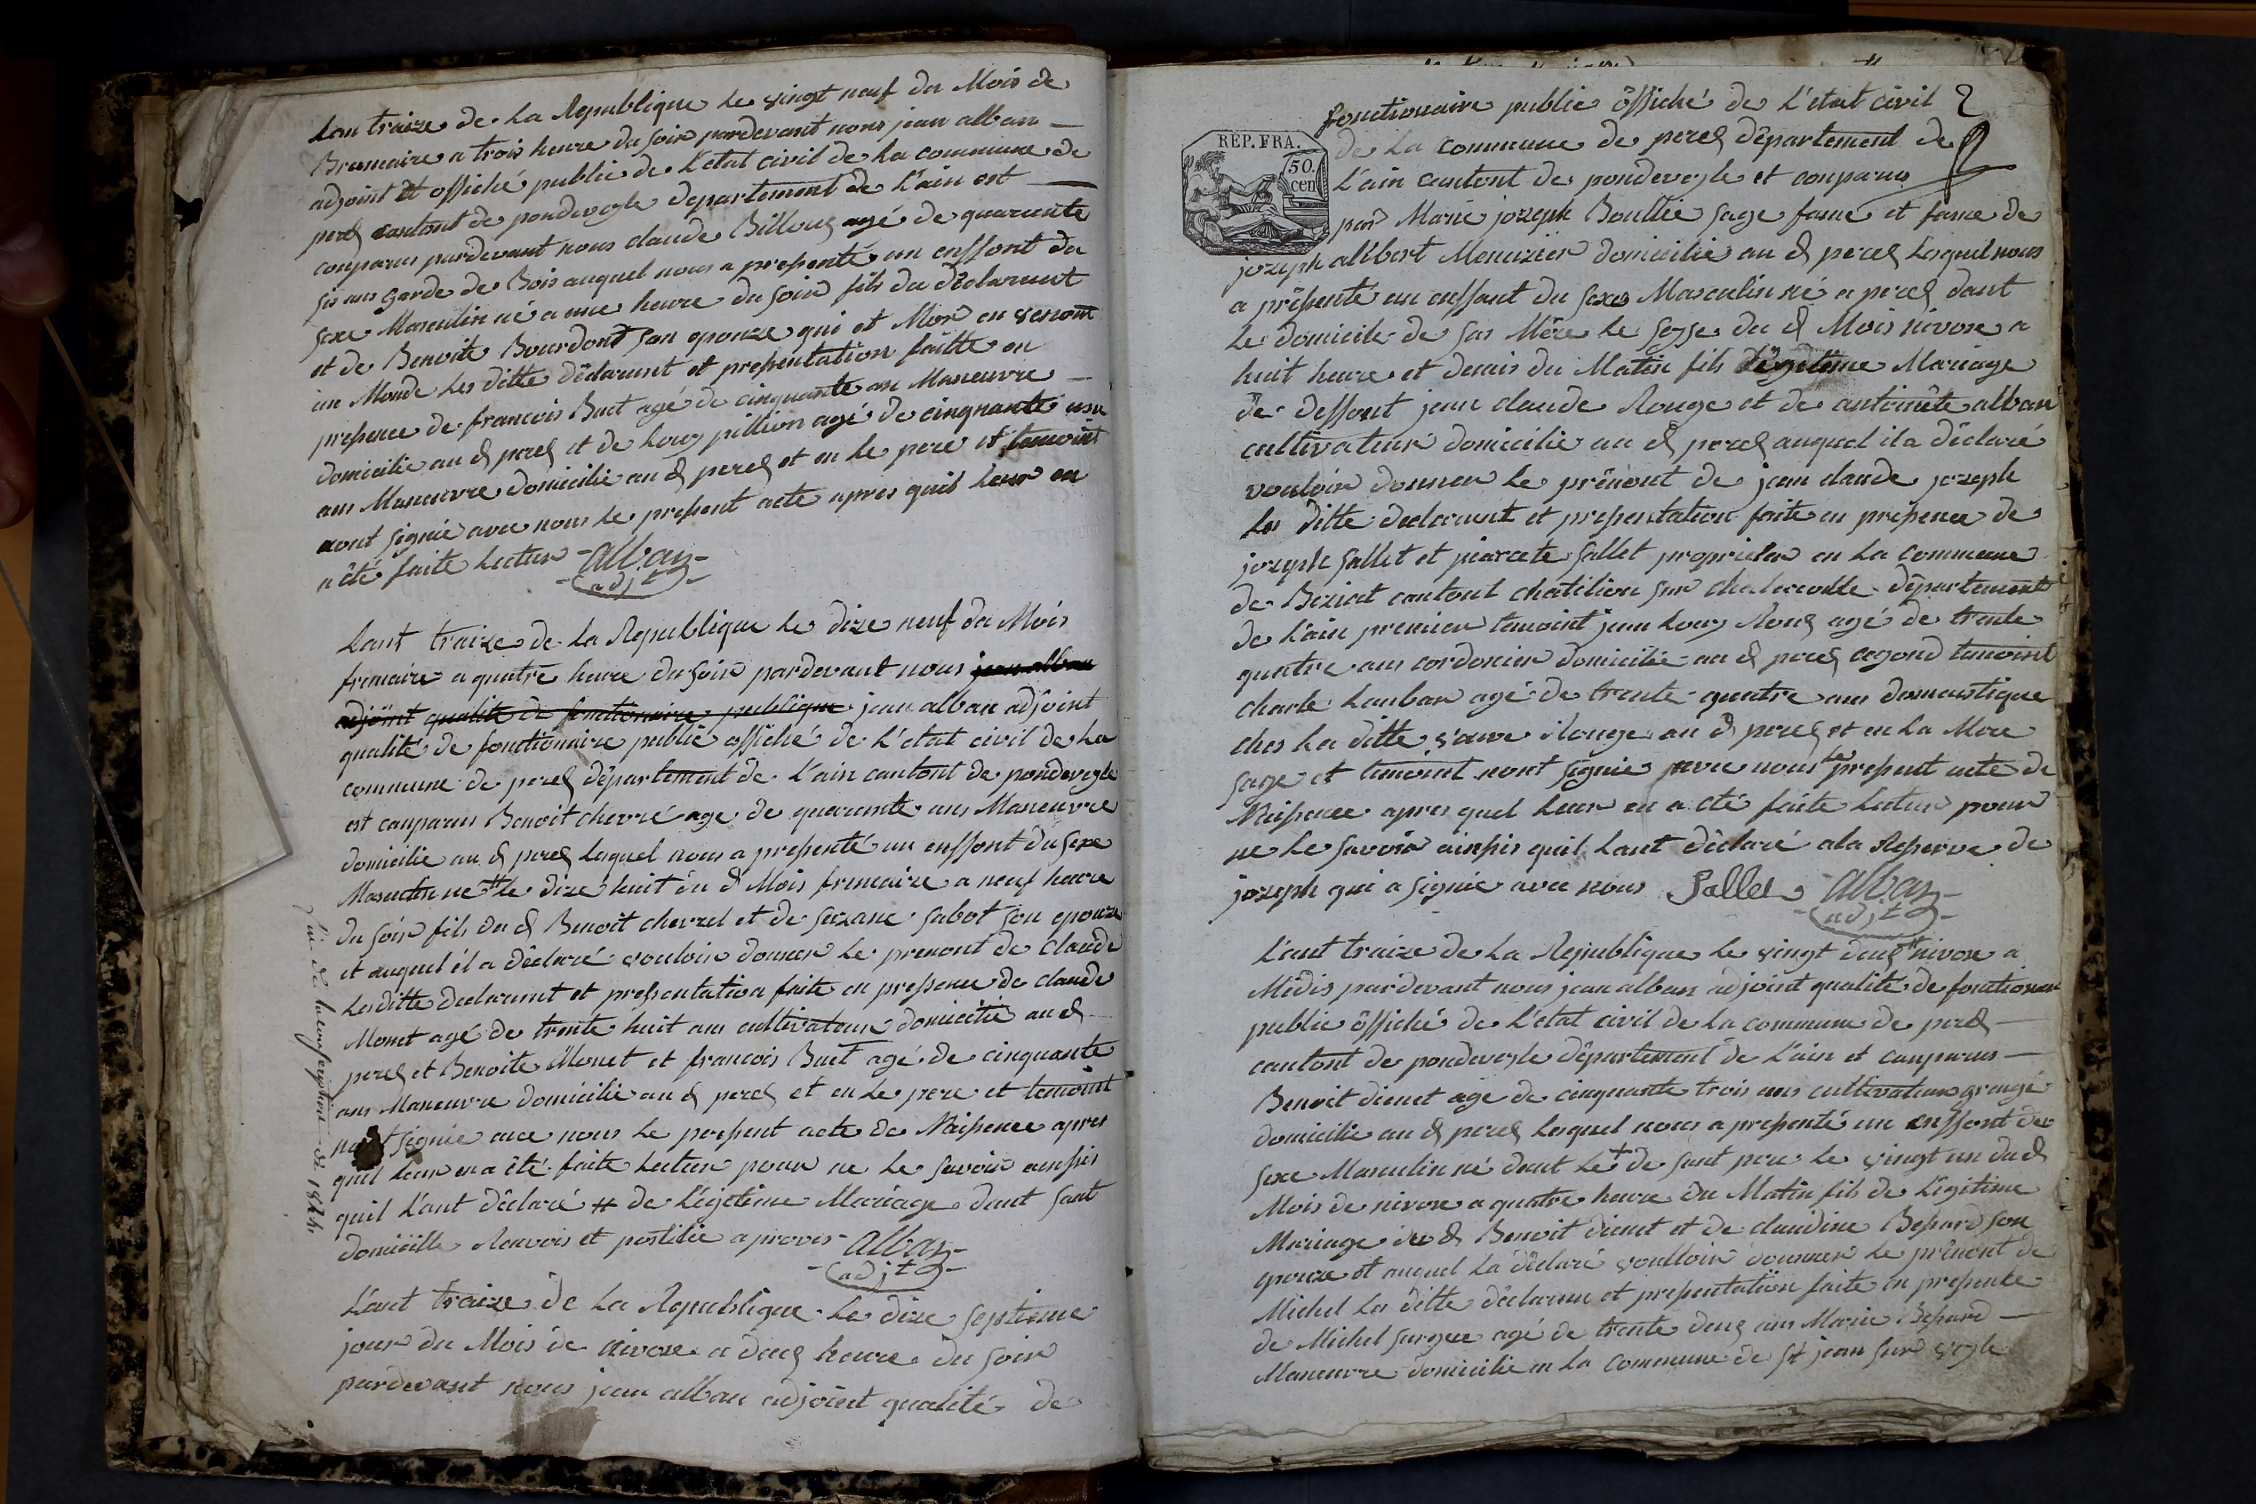 Lan traize de La Republique Le vingt neuf du Mois de
Brumaire a trois heure du soir pardevant nous jean alban
adjoint et offiché public de L'etat civil de La commune de
perex cantont de pondevegle departement de L'ain est
conparus pardevant nous claude Billoux agé de quarente
six ans garde de Bois auquel nous a presenté un enffont du
sexe Masculin né a une heure du soir fils du déclarent
et de Benoite Bourdont son epouze qui et Mor en venont
au Monde Les ditte déclarent et presentation faitte en
presence de francois Buet agé de cinquante an Maneuvre
domicilie au d perex et de Louy pillion agé de cinquante
ans Maneuvre domicilie au d perex et en Le pere et temoint
nont signié avec nous Le present acte apres quil Leur en
a été faite Lectur alban
adjt
Lant traize de La Republique Le dize neuf du Mois
frimaire a quatre heure du soir pardevant nous jean alban
adjoint qualite de fonctionaire publique jean alban adjoint
qualité de fonctionaire public offiché de L'etat civil de La
commune de perex département de L'ain cantont de pondevegle
est conparus Benoit chevré age de quarente ans Maneuvre
domicilie au d perex Lequel nous a presenté un enffont du sexe
Masculin né # Le dize huit du d Mois frimaire a neuf heure
du soir fils du d Benoit chevrel et de suzane sabot son epouze
et auquel il a déclaré vouloir donner Le prenont de Claude
Les ditte declarent et pressentation faite en pressence de claude
Monet agé de trente huit ans cultivateur domicilié au d
perex et Benoite Monet et francois Buet agé de cinquante
ans Maneuvre domicilie au d perex et en Le pere et temoint
nont signié avec nous Le present acte de Naissence apres
quil Leur en a été faite Lecture pour ne Le savoir ainssis
quil L'ant déclaré # de Légetime Mariage dant sont
domicille Renvois et postilie aprover alban
adjt
de la conscription de 1824
L'ant traize de La Republique Le dize septieme
jour du Mois de nivoze a deux heure du soir
pardevant nous jean alban adjoint qualité de
2
REP. FRA.
50.
cen
fonctionaire public offiché de L'etat civil
de La commune de perex département de
L'ain cantont de pondevegle et conparus
par Marie jozeph Boullie sage fame et fame de
jozeph alibert Menuizier domicilie au d perex Lequel nous
a présenté un enffant du sexe Masculin né a perex dant
Le domicile de sas Mère Le sezze du d Mois nivoze a
huit heure et demis du Matin fils Légetime Mariage
de deffont jean claude Rouge et de antoinéte alban
cultivateur domicilie au d perex auquel il a déclaré
vouloir donner Le prénont de jean claude jozeph
Les ditte declarent et presentation faite en presence de
jozeph sallet et sallet en La commune
de Biziat cantont chatilion sur chalaronne département
de L'ain premier temoint jean Louy Roux agé de trente
quatre ans cordonier domicilié au d perex cegond temoint
charle Lauban agé de trente quatre ans domestique
ches La ditte veuve Rouge au d perex et en La Mere
sage et temoint nont signié avec nous le present acte de
Naissence apres quel Leur en a été faite Lecture pour
ne Le savoir ainssis quil Lant déclaré ala Reserve de
jozeph qui a signié avec nous Sallet alban
adjt
L'ant traize de La Republique Le vingt deux nivoze a
Midis pardevant nous jean alban adjoint qualité de fonctionair
public offiché de L'etat civil de La commune de perex
cantont de pondevegle département de L'ain et conparus
Benoit dienet age de cinquante trois ans cultivateur grangé
domicilie au d perex Lequel nous a presenté un enffont de
sexe Masculin né dant Le + de sont pere Le vingt un du d
Mois de nivoze a quatre heure du Matin fils de Légitime
Mariage du d Benoit dienet et de claudine Besard son
epouze et auquel La déclaré voulloir donner Le prénont de
Michel Les ditte déclarent et presentation faite en presente
de Michel agé de trente deux ans Marie Besard
Maneuvre domicilie en La commune de St jean sur vegle